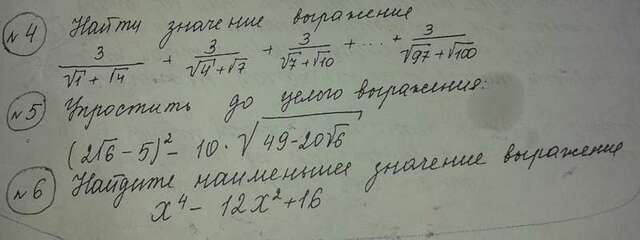 №4 Найти значение выражение
3/(√1 + √4) + 3/(√4 + √7) + 3/(√7 + √10) + ... + 3/(√97 + √100)
№5 Упростить до целого выражения:
(2√6 - 5)² - 10 · √(49 - 20√6)
№6 Найдите наименьшее значение выражение
x⁴ - 12x² + 16